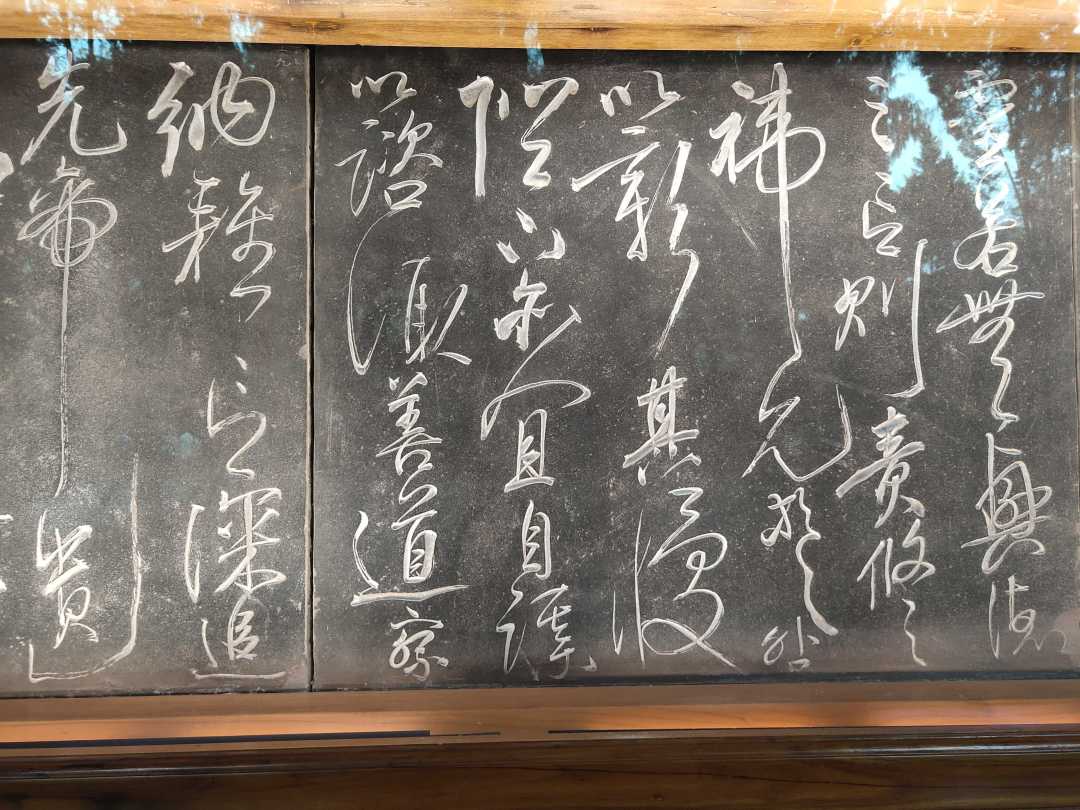 靈若無興德
之言則責攸之
禕允等咎
以彰其慢
陛下亦宜自謀
以諮諏善道察
納雅言深追
先帝遺